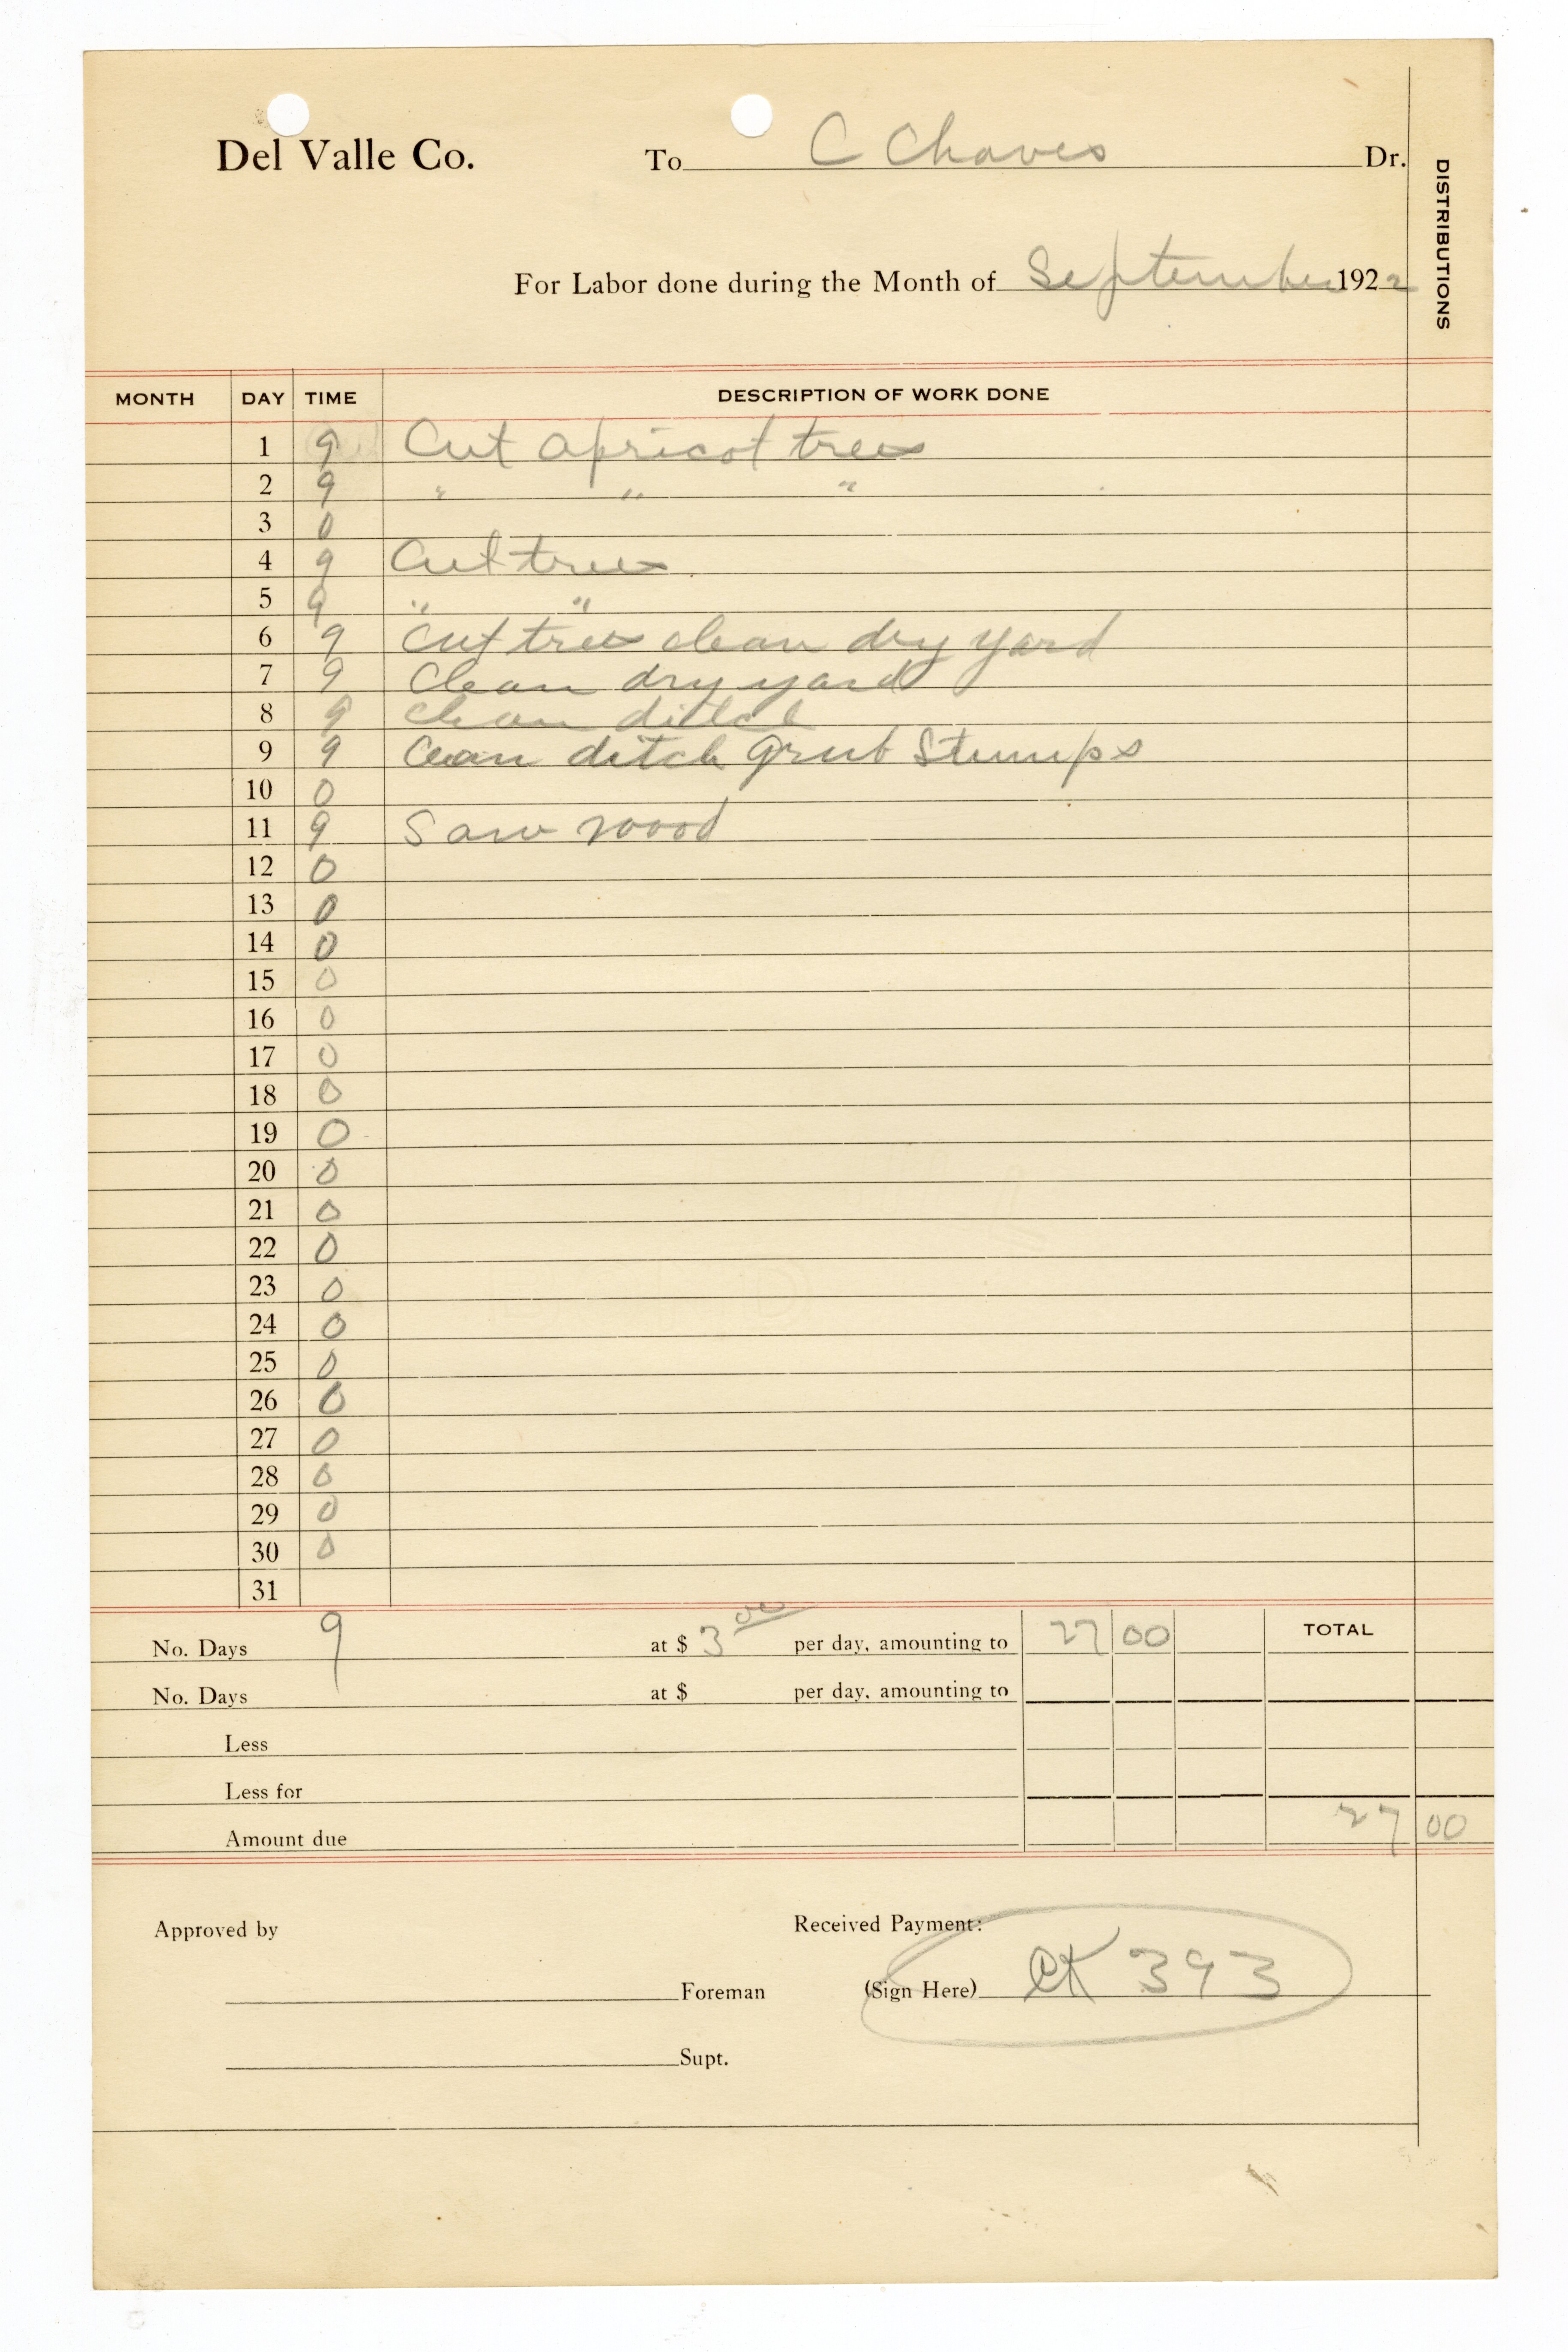 Del Valle Co. To C Chaves Dr.
DISTRIBUTIONS
For Labor done during the Month of September 1922
MONTH DAY TIME DESCRIPTION OF WORK DONE
1 9 Cut apricot trees
2 9 " " "
3 0
4 9 Cut trees
5 9 " "
6 9 Cut trees clean dry yard
7 9 Clean dry yard
8 9 Clean ditch
9 9 Clean ditch grub Stumps
10 0
11 9 Saw wood
12 0
13 0
14 0
15 0
16 0
17 0
18 0
19 0
20 0
21 0
22 0
23 0
24 0
25 0
26 0
27 0
28 0
29 0
30 0
31
No. Days 9 at $ 3 00 per day, amounting to 27 00 TOTAL
No. Days at $ per day, amounting to
Less
Less for
Amount due 27 00
Approved by Received Payment:
Foreman (Sign Here) CK 393
Supt.